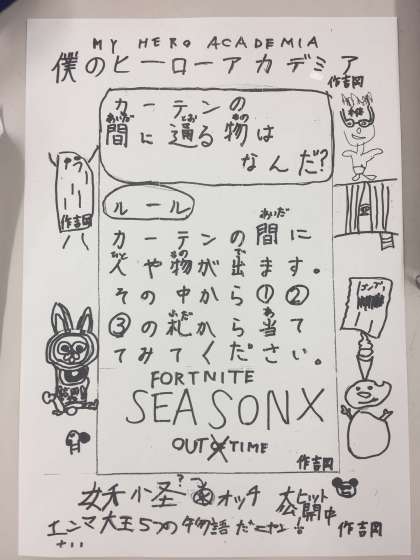 MY HERO ACADEMIA
僕のヒーローアカデミア
作吉岡
カーテンの
間に通る物は
あいだ とお もの
なんだ?
ルール
あいだ
カーテンの間に
ひと もの で
人や物が出ます。
その中から①②
③の札から当て
てみてください。
FORTNITE
SEASON X
OUT OF TIME
作吉岡
作吉岡
妖怪
ウォッチ
大ヒット
公開中
エンマ大王5つの物語だニャン!
作吉岡